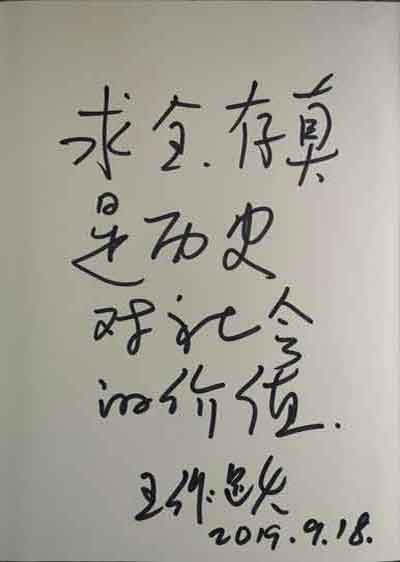 求全.存真
是历史
对社会
的价值.
王作
2019.9.18.